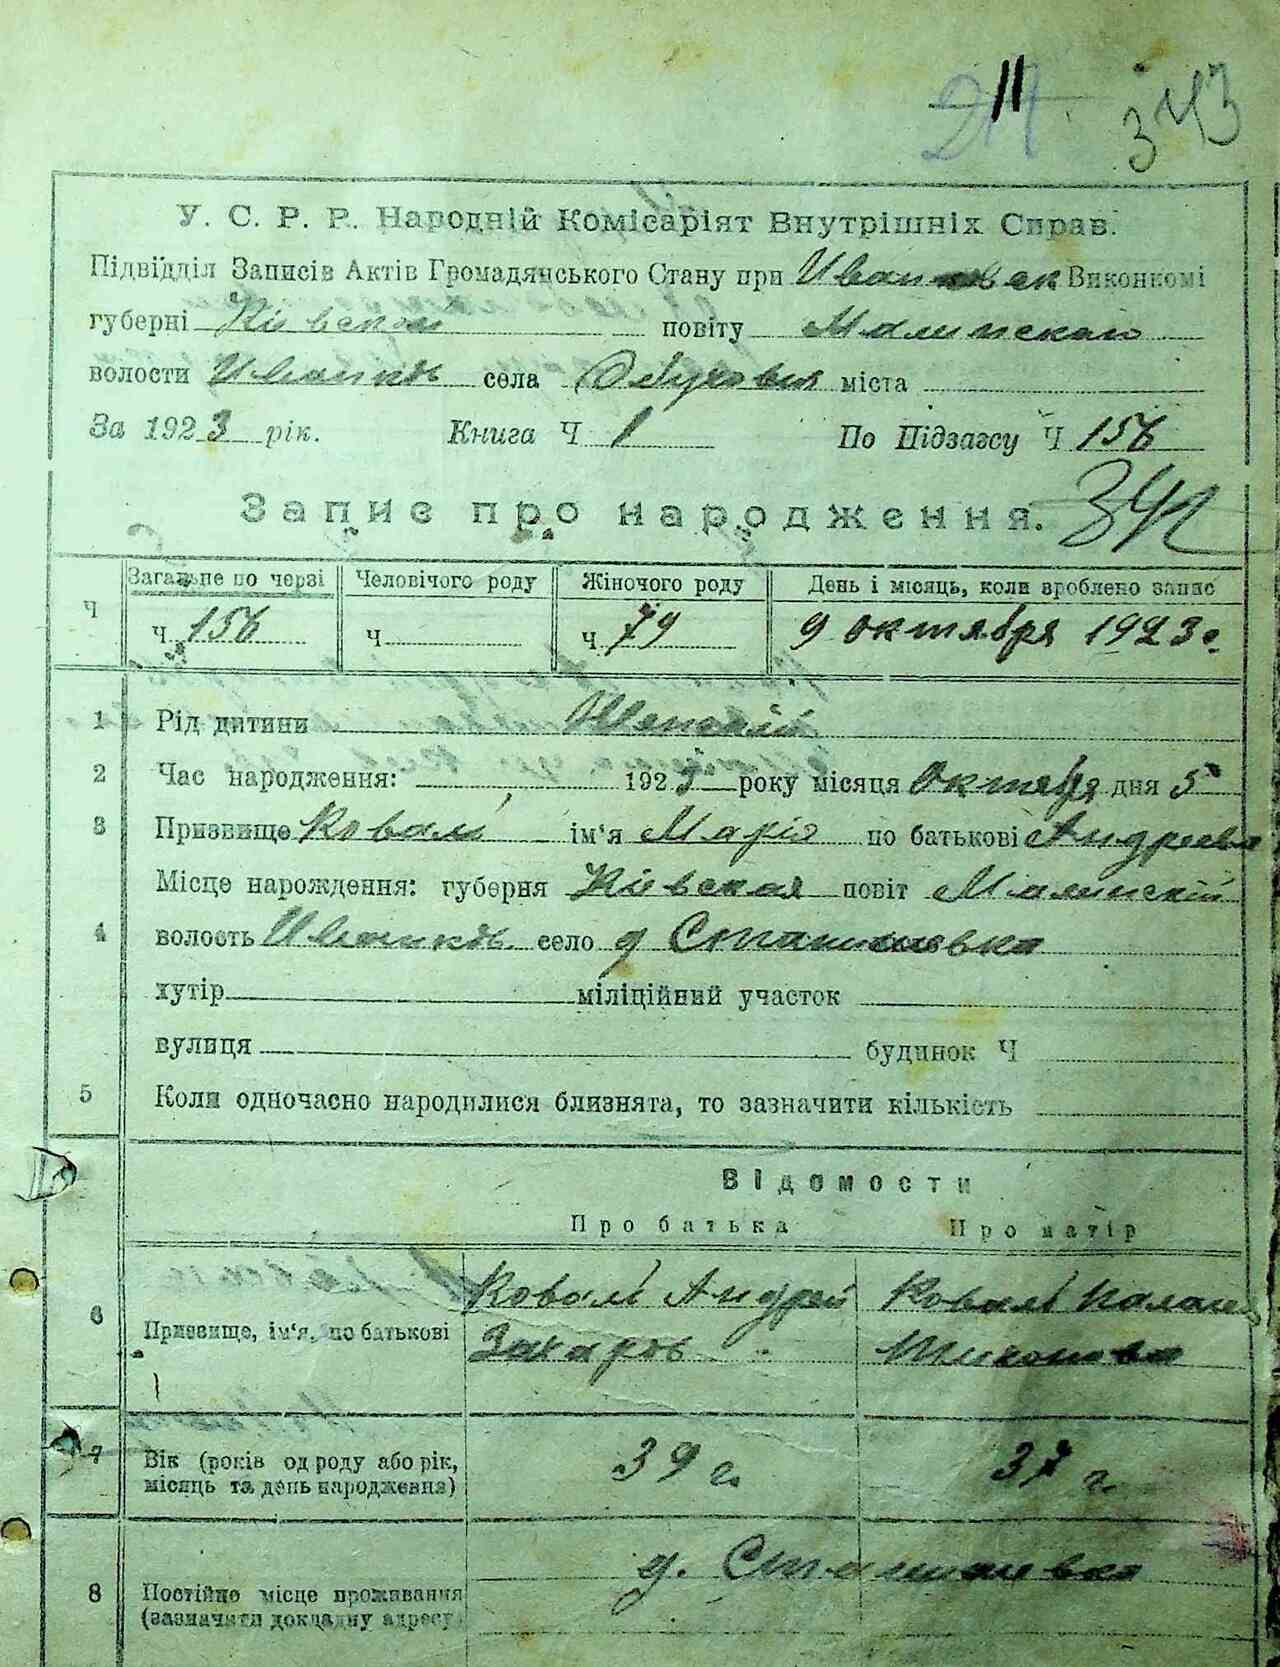 11 343
У. С. Р. Р. Народній Комісаріят Внутрішніх Справ.
Підвідділ Записів Актів Громадянського Стану при Иванковск Виконкомі
губерні Кіевской повіту Малинскаго
волости Иванков села Обуховичи міста
За 1923 рік. Книга Ч 1 По Підзагсу Ч 156
Запис про народження.
Загальне по черзі Человічого роду Жіночого роду День і місяць, коли зроблено запис
Ч Ч 156 Ч Ч 79 9 октября 1923 г.
1 Рід дитини Женскій
2 Час народження: 1923 року місяця Октября дня 5
3 Призвище Коваль ім'я Марія по батькові Андреевна
Місце нарождення: губерня Кіевская повіт Малинскій
4 волость Иванков село д Сташшевка
хутір міліційний участок
вулиця будинок Ч
5 Коли одночасно народилися близнята, то зазначити кількість
Відомости
Про батька Про матір
Коваль Андрей Коваль Палаге
6 Призвище, ім'я, по батькові Захаров Тихонова
7 Вік (років од роду або рік, 39 г. 37 г.
місяць та день народження)
д. Сташшевка
8 Постійне місце проживання
(зазначити докладну адресу)